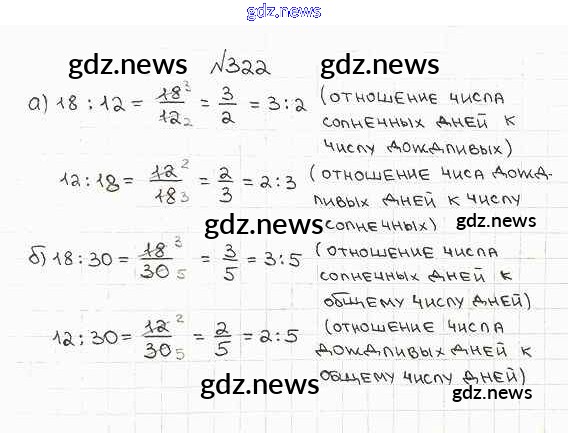 gdz.news
gdz.news №322 gdz.news
а) 18 : 12 = 18³/12₂ = 3/2 = 3 : 2 (отношение числа
солнечных дней к
числу дождливых)
12 : 18 = 12²/18₃ = 2/3 = 2 : 3 (отношение чиса дожд-
ливых дней к числу
солнечных)
gdz.news gdz.news
б) 18 : 30 = 18³/30₅ = 3/5 = 3 : 5 (отношение числа
солнечных дней к
общему числу дней)
12 : 30 = 12²/30₅ = 2/5 = 2 : 5 (отношение числа
дождливых дней к
общему числу дней)
gdz.news gdz.news